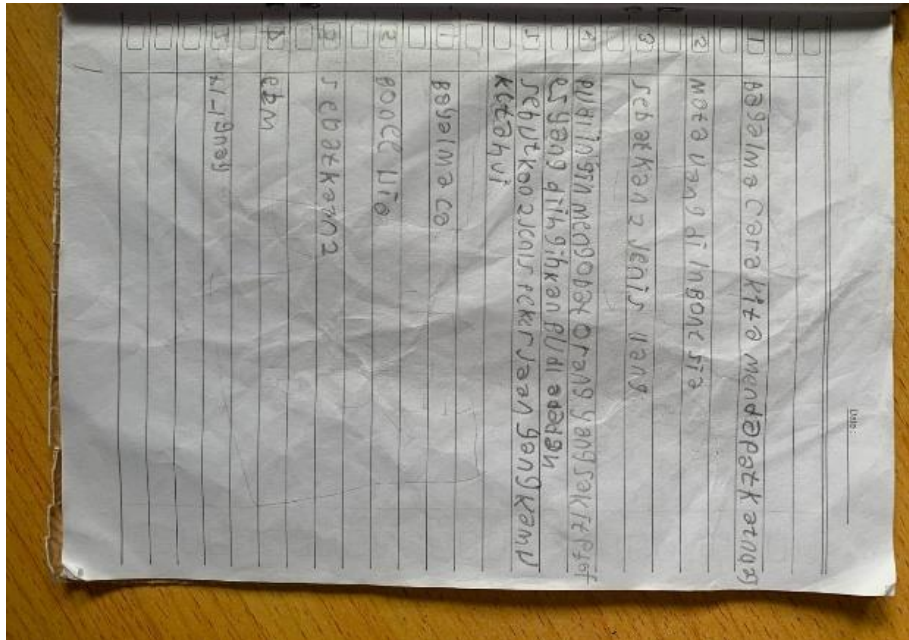 Date:
1 Bagalma cara kita mendapatkaznag
2 mata uang di Ingonesia
3 sebatkan 2 Jenis uang
4 budi ingin mengobat orang yang sakit
es yang di ingihkan budi adalah
5 sebutkao 2 Jenis Pekerjaan yang kamu
kitahui
1 Bagalmaca
2
3 sebatkann2
4 ebm
5